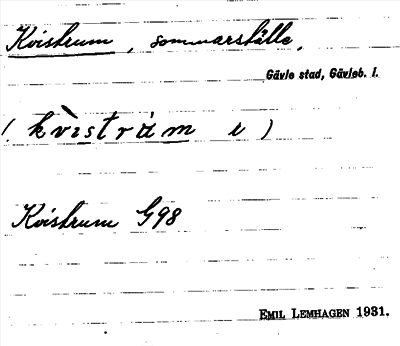 Kvistrum, sommarställe,
Gävle stad, Gävleb. l.
Kvistrum G98
EMIL LEMHAGEN 1931.